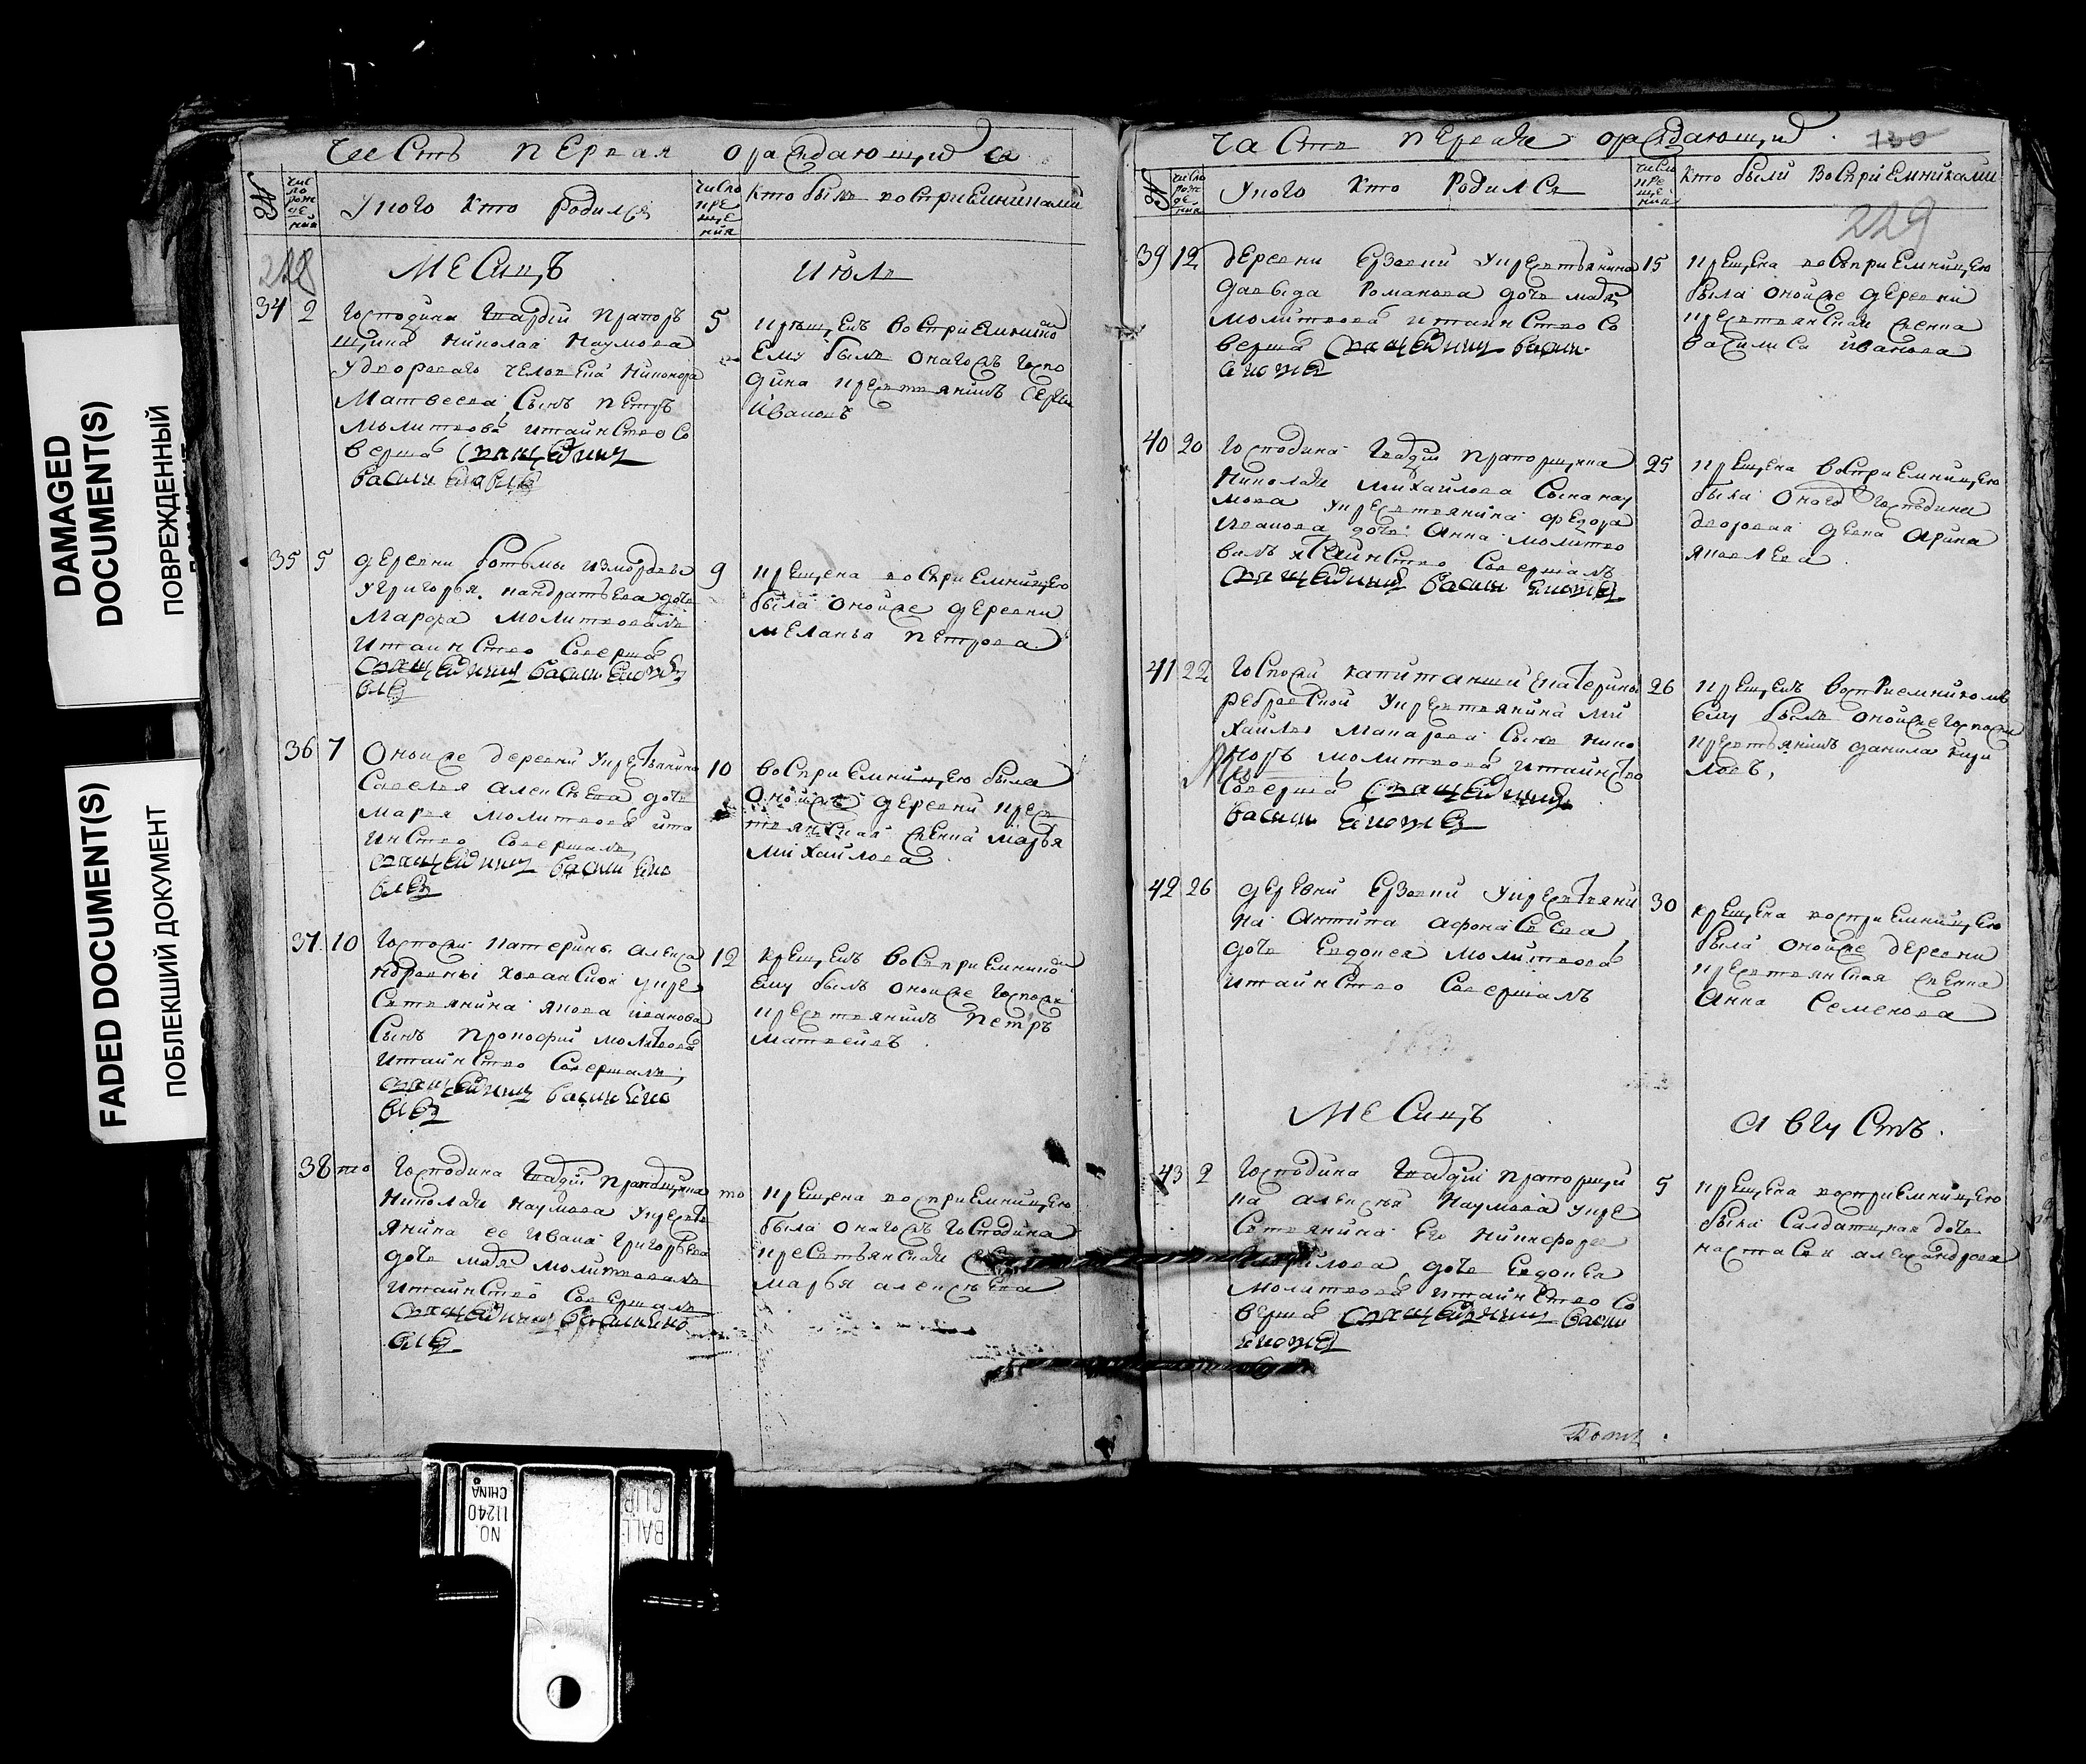 DAMAGED
DOCUMENT(S)
ПОВРЕЖДЕННЫЙ
FADED DOCUMENT(S)
ПОБЛЕКШИЙ ДОКУМЕНТ
Честь первая
№
число рожде нии
У кого кто родился
число кре ще ния
кто былъ восприемниками
228
Месяцъ
июль
34 2
Господина Гвардии прапор
щика Николая Наумова
у двороваго человека Никонора
Матвеева сынъ петръ
молитвова и таинство со
верша Священникъ
Васили
5
крещенъ восприемнико
ему былъ онагожъ госпо
дина крестьянинъ
Ивановъ
35 5
деревни
у григорья кандратьева дочь
молитвовалъ
и таинство соверша
священникъ Васили
9
крещена восприемницею
была оной же деревни
меланья петрова
36 7
оной же деревни у крестьянина
Савелья алексеева дочь
Марья молитвова и та
инство совершалъ
священникъ Васили
10
восприемницею была
оной же деревни крес
тьянская жена марья
михайлова
37 10
госпожи катерины алекса
ндровны хованской у кре
стьянина якова иванова
сынъ прокофий молитвова
и таинство совершалъ
священникъ Васили
12
крещенъ восприемнико
ему былъ оной же госпожи
крестьянинъ петръ
матвеивъ
38 то
Господина Гвардии прапорщика
Николая Наумова у кресть
янина ее Ивана Григорьева
дочь молитвовалъ
и таинство совершалъ
священникъ
то
крещена восприемницею
была онагожъ господина
крестьянская
марья алексеева
часть первая
130
№
число рож де нии
У кого кто родился
число кре ще нии
кто были восприемниками
229
39 12
деревни Ерзовки у крестьянина
давыда романова дочь
молитвова и таинство со
верша священникъ Васили
15
крещена восприемницею
была оной же деревни
крестьянская женна
василиса иванова
40 20
Господина Гвардии прапорщика
Николая михайлова сына нау
мова у крестьянина федора
иванова дочь Анна молитво
валъ и таинство совершалъ
священникъ Васили
25
крещена восприемницею
была оного господина
дворовая девка арина
яковлева
41 22
Госпожи капитанши екатерины
ребровской у крестьянина ми
хайлы макарова сынъ нико
норъ молитвова и таинство
соверша священникъ
Васили
26
крещенъ восприемникомъ
ему былъ оной же госпожи
крестьянинъ данила
42 26
деревни Ерзовки у крестьяни
на Антипа афонасеева
дочь Евдокея молитвова
и таинство совершалъ
30
крещена восприемницею
была оной же деревни
крестьянская женна
Анна семенова
Месяцъ
августъ.
43 2
Господина Гвардии прапорщи
ка алексея Наумова у кре
стьянина его никифора
дочь Евдокея
молитвова и таинство со
верша священникъ Васи
5
крещена восприемницею
была салдатцкая дочь
настасея александрова
NO. 11240
CHINA
BALL
CLIP